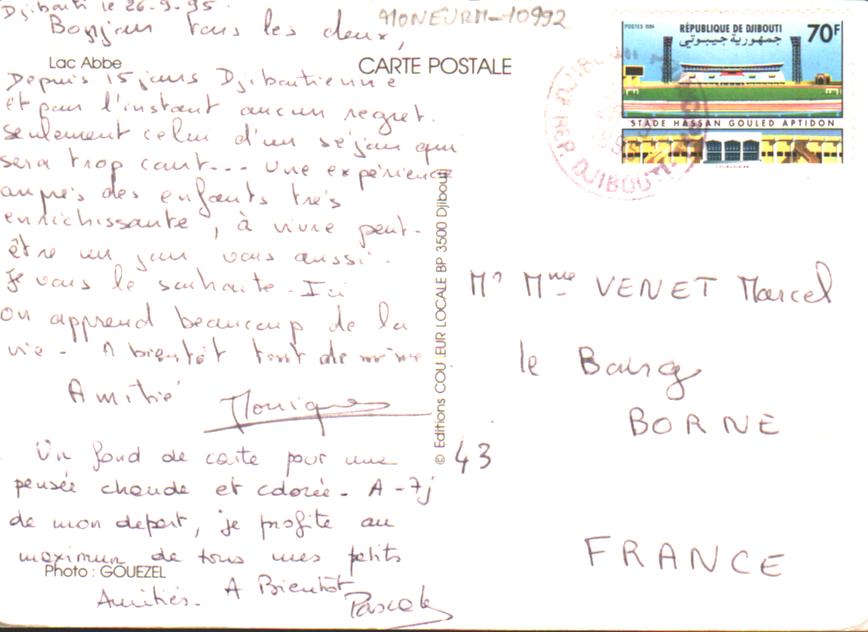 Djibouti le 26-9-95.
MONEURM-10992
Bonjour tous les deux,
Lac Abbe
CARTE POSTALE
Depuis 15 jours Djiboutienne
et pour l'instant aucun regret.
Seulement celui d'un séjour qui
sera trop court... Une expérience
auprès des enfants très
enrichissante, à vivre peut-
être un jour vous aussi.
Je vous le souhaite. Ici
on apprend beaucoup de la
vie. A bientôt tout de même
Amitié
Monique
Un fond de carte pour une
pensée chaude et colorée. A -7j
de mon départ, je profite au
maximum de tous mes petits
Photo : GOUEZEL
Amitiés. A Bientôt
Pascale
© Editions COULEUR LOCALE BP 3500 Djibouti
POSTES 1994
RÉPUBLIQUE DE DJIBOUTI
70F
جمهورية جيبوتي
STADE HASSAN GOULED APTIDON
REP. DJIBOUTI
Mr Mme VENET Marcel
le Bourg
BORNE
43
FRANCE